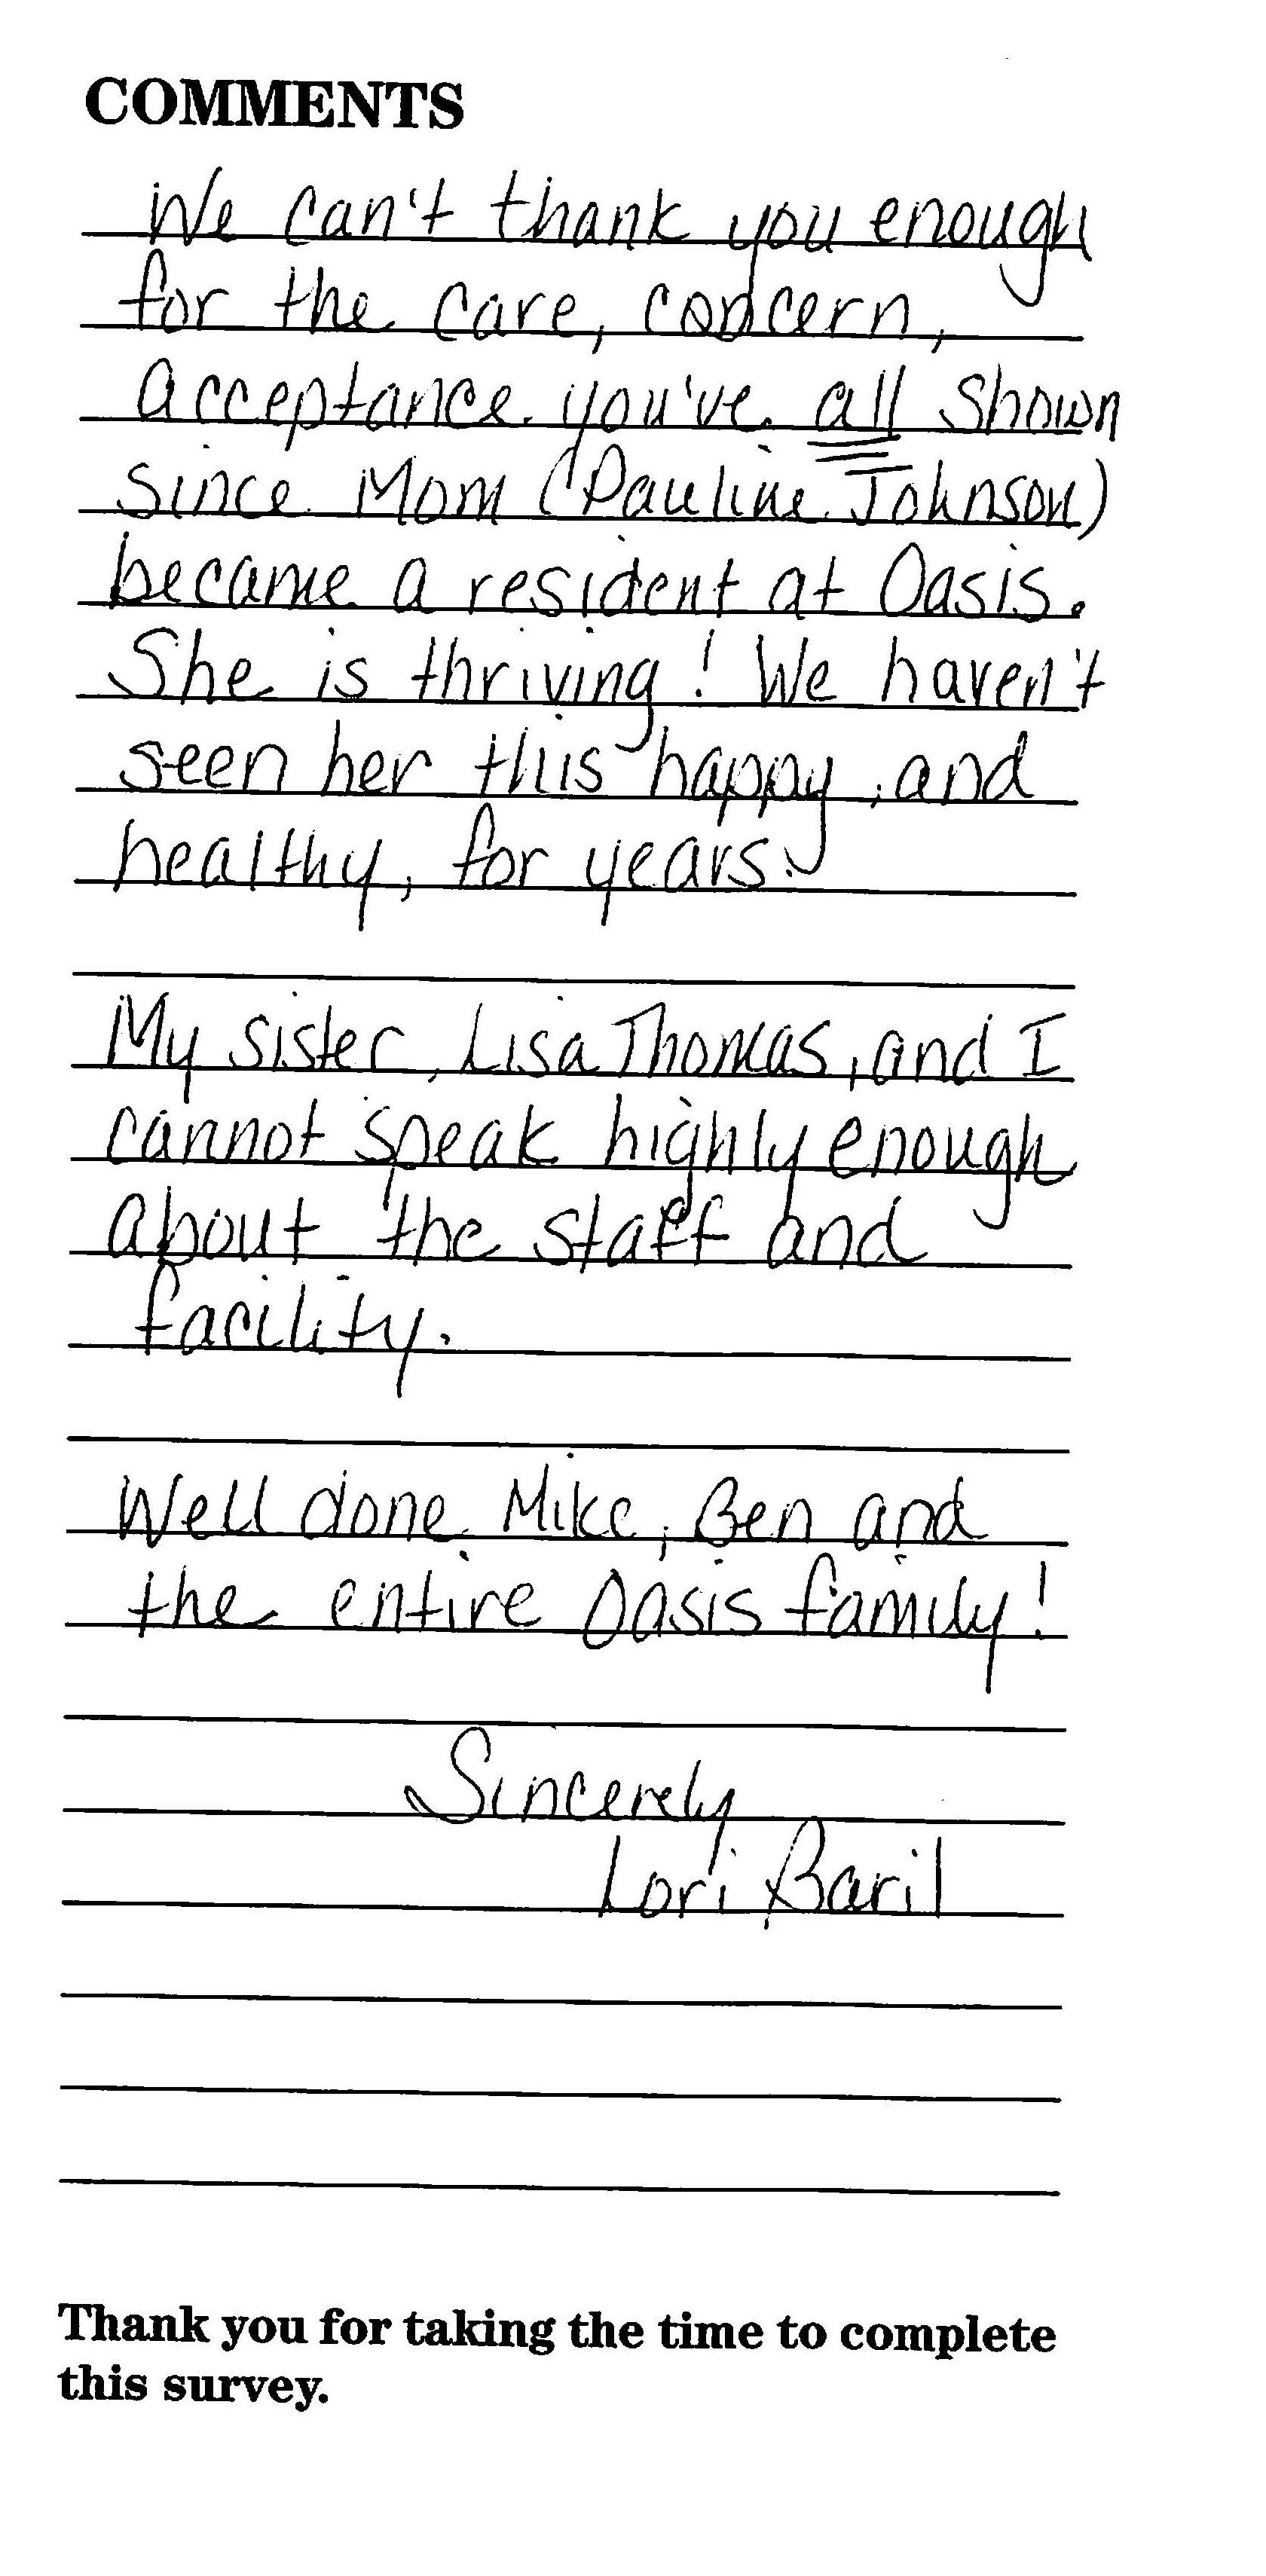 COMMENTS
We can't thank you enough
for the care, concern,
acceptance you've all shown
since Mom (Pauline Johnson)
became a resident at Oasis.
She is thriving! We haven't
seen her this happy, and
healthy, for years.
My sister, Lisa Thomas, and I
cannot speak highly enough
about the staff and
facility.
Well done Mike, Ben and
the entire Oasis family!
Sincerely
Lori Baril
Thank you for taking the time to complete
this survey.